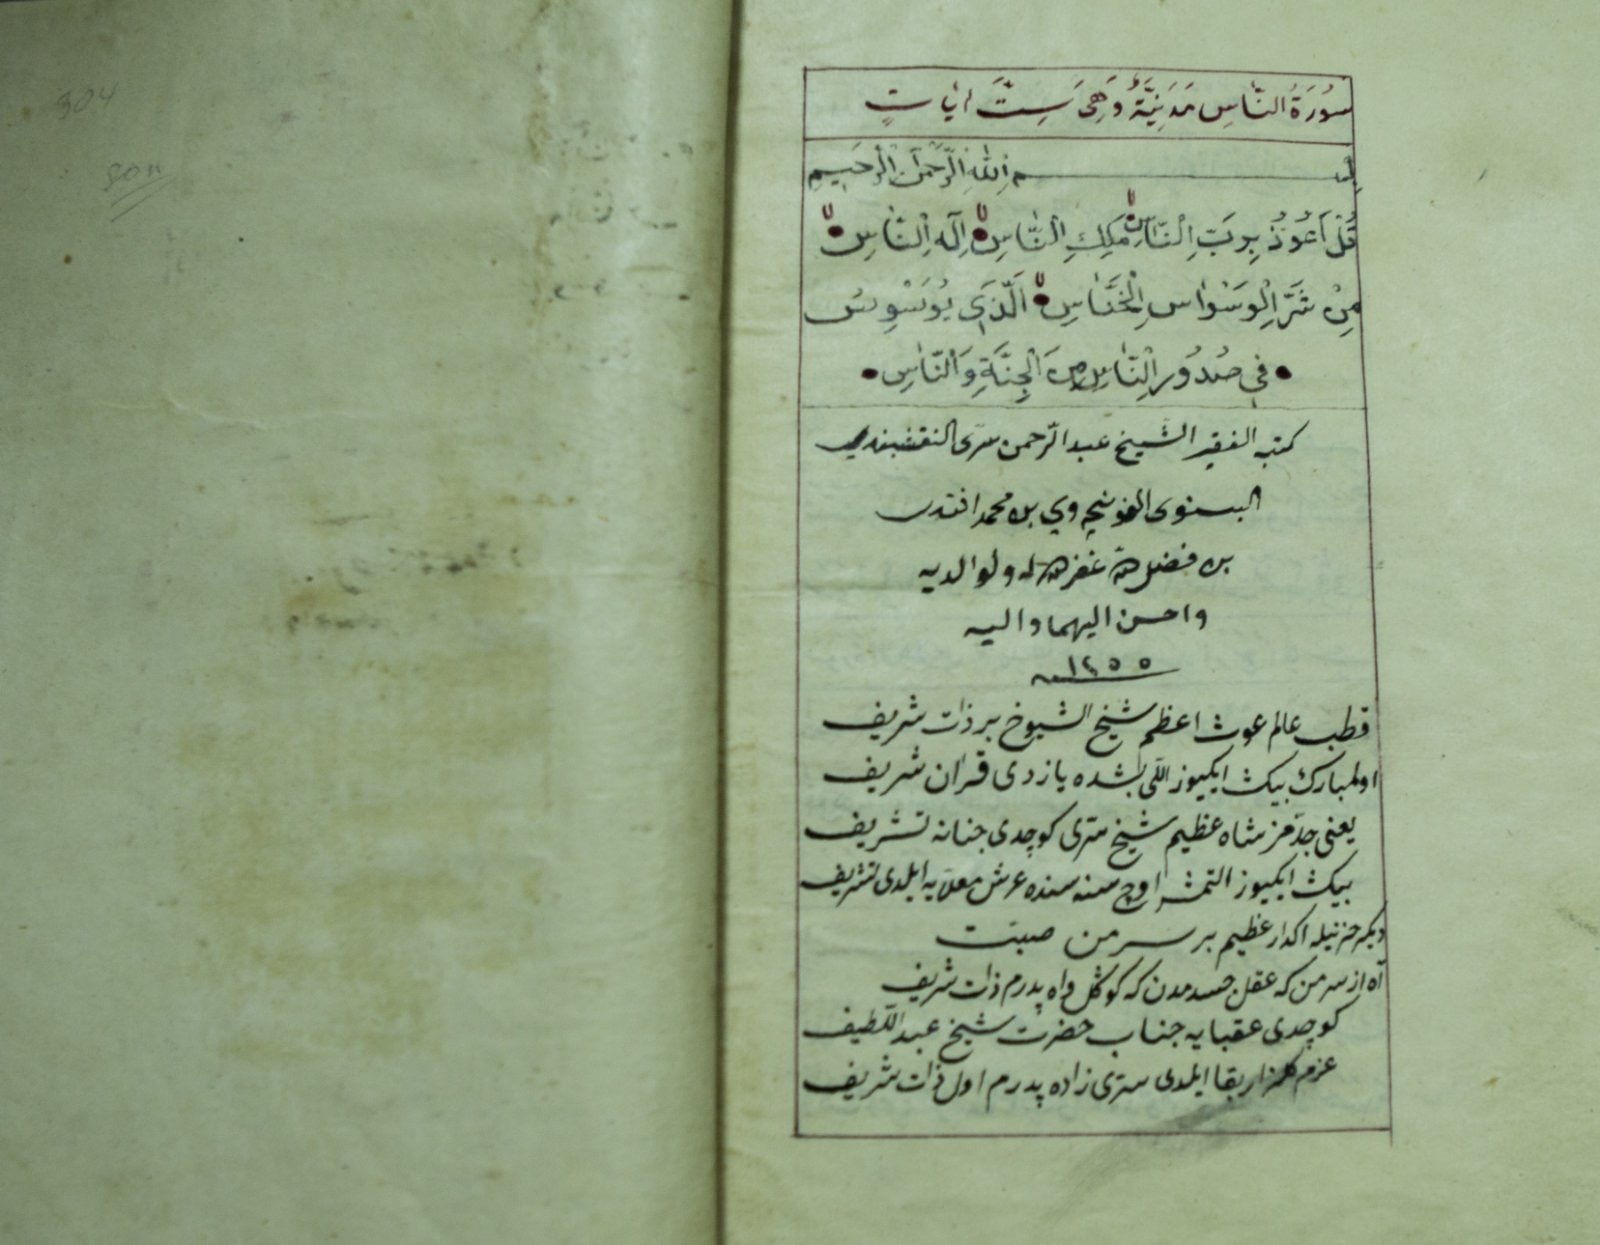 304
son
سُورَةُ النَّاسِ مَدَنِيَّةٌ وَهِىَ سِتَّ اٰيَاتٍ
بِسْمِ اللهِ الرَّحْمٰنِ الرَّحِيمِ
قُلْ اَعُوذُ بِرَبِّ النَّاسِ مَلِكِ النَّاسِ اِلٰهِ النَّاسِ
مِنْ شَرِّ الْوَسْوَاسِ الْخَنَّاسِ اَلَّذِى يُوَسْوِسُ
فِى صُدُورِ النَّاسِ مِنَ الْجِنَّةِ وَالنَّاسِ
كتبه الفقير الشيخ عبد الرحمن سرى النقشبندى
البسنوى الفوينچه وي بن محمد افندى
بن فضل الله غفر الله له ولوالديه
واحسن اليهما واليه
١٢٥٥
قطب عالم غوث اعظم شيخ الشيوخ بر ذات شريف
اول مبارك بيك ايكيوز اللى بشده يازدى قران شريف
يعنى جدمز شاه عظيم شيخ سرى كوچدى جنانه تشريف
بيك ايكيوز التمش اوچ سنه سنده عرش معلايه ايلدى تشريف
ديكر عظيم بر سر من
آه از سر من كه عقل مدن كه كوكل واه پدرم ذات شريف
كوچدى عقبايه جناب حضرت شيخ عبد اللطيف
عزم كلزار بقا ايلدى سرى زاده پدرم اول ذات شريف